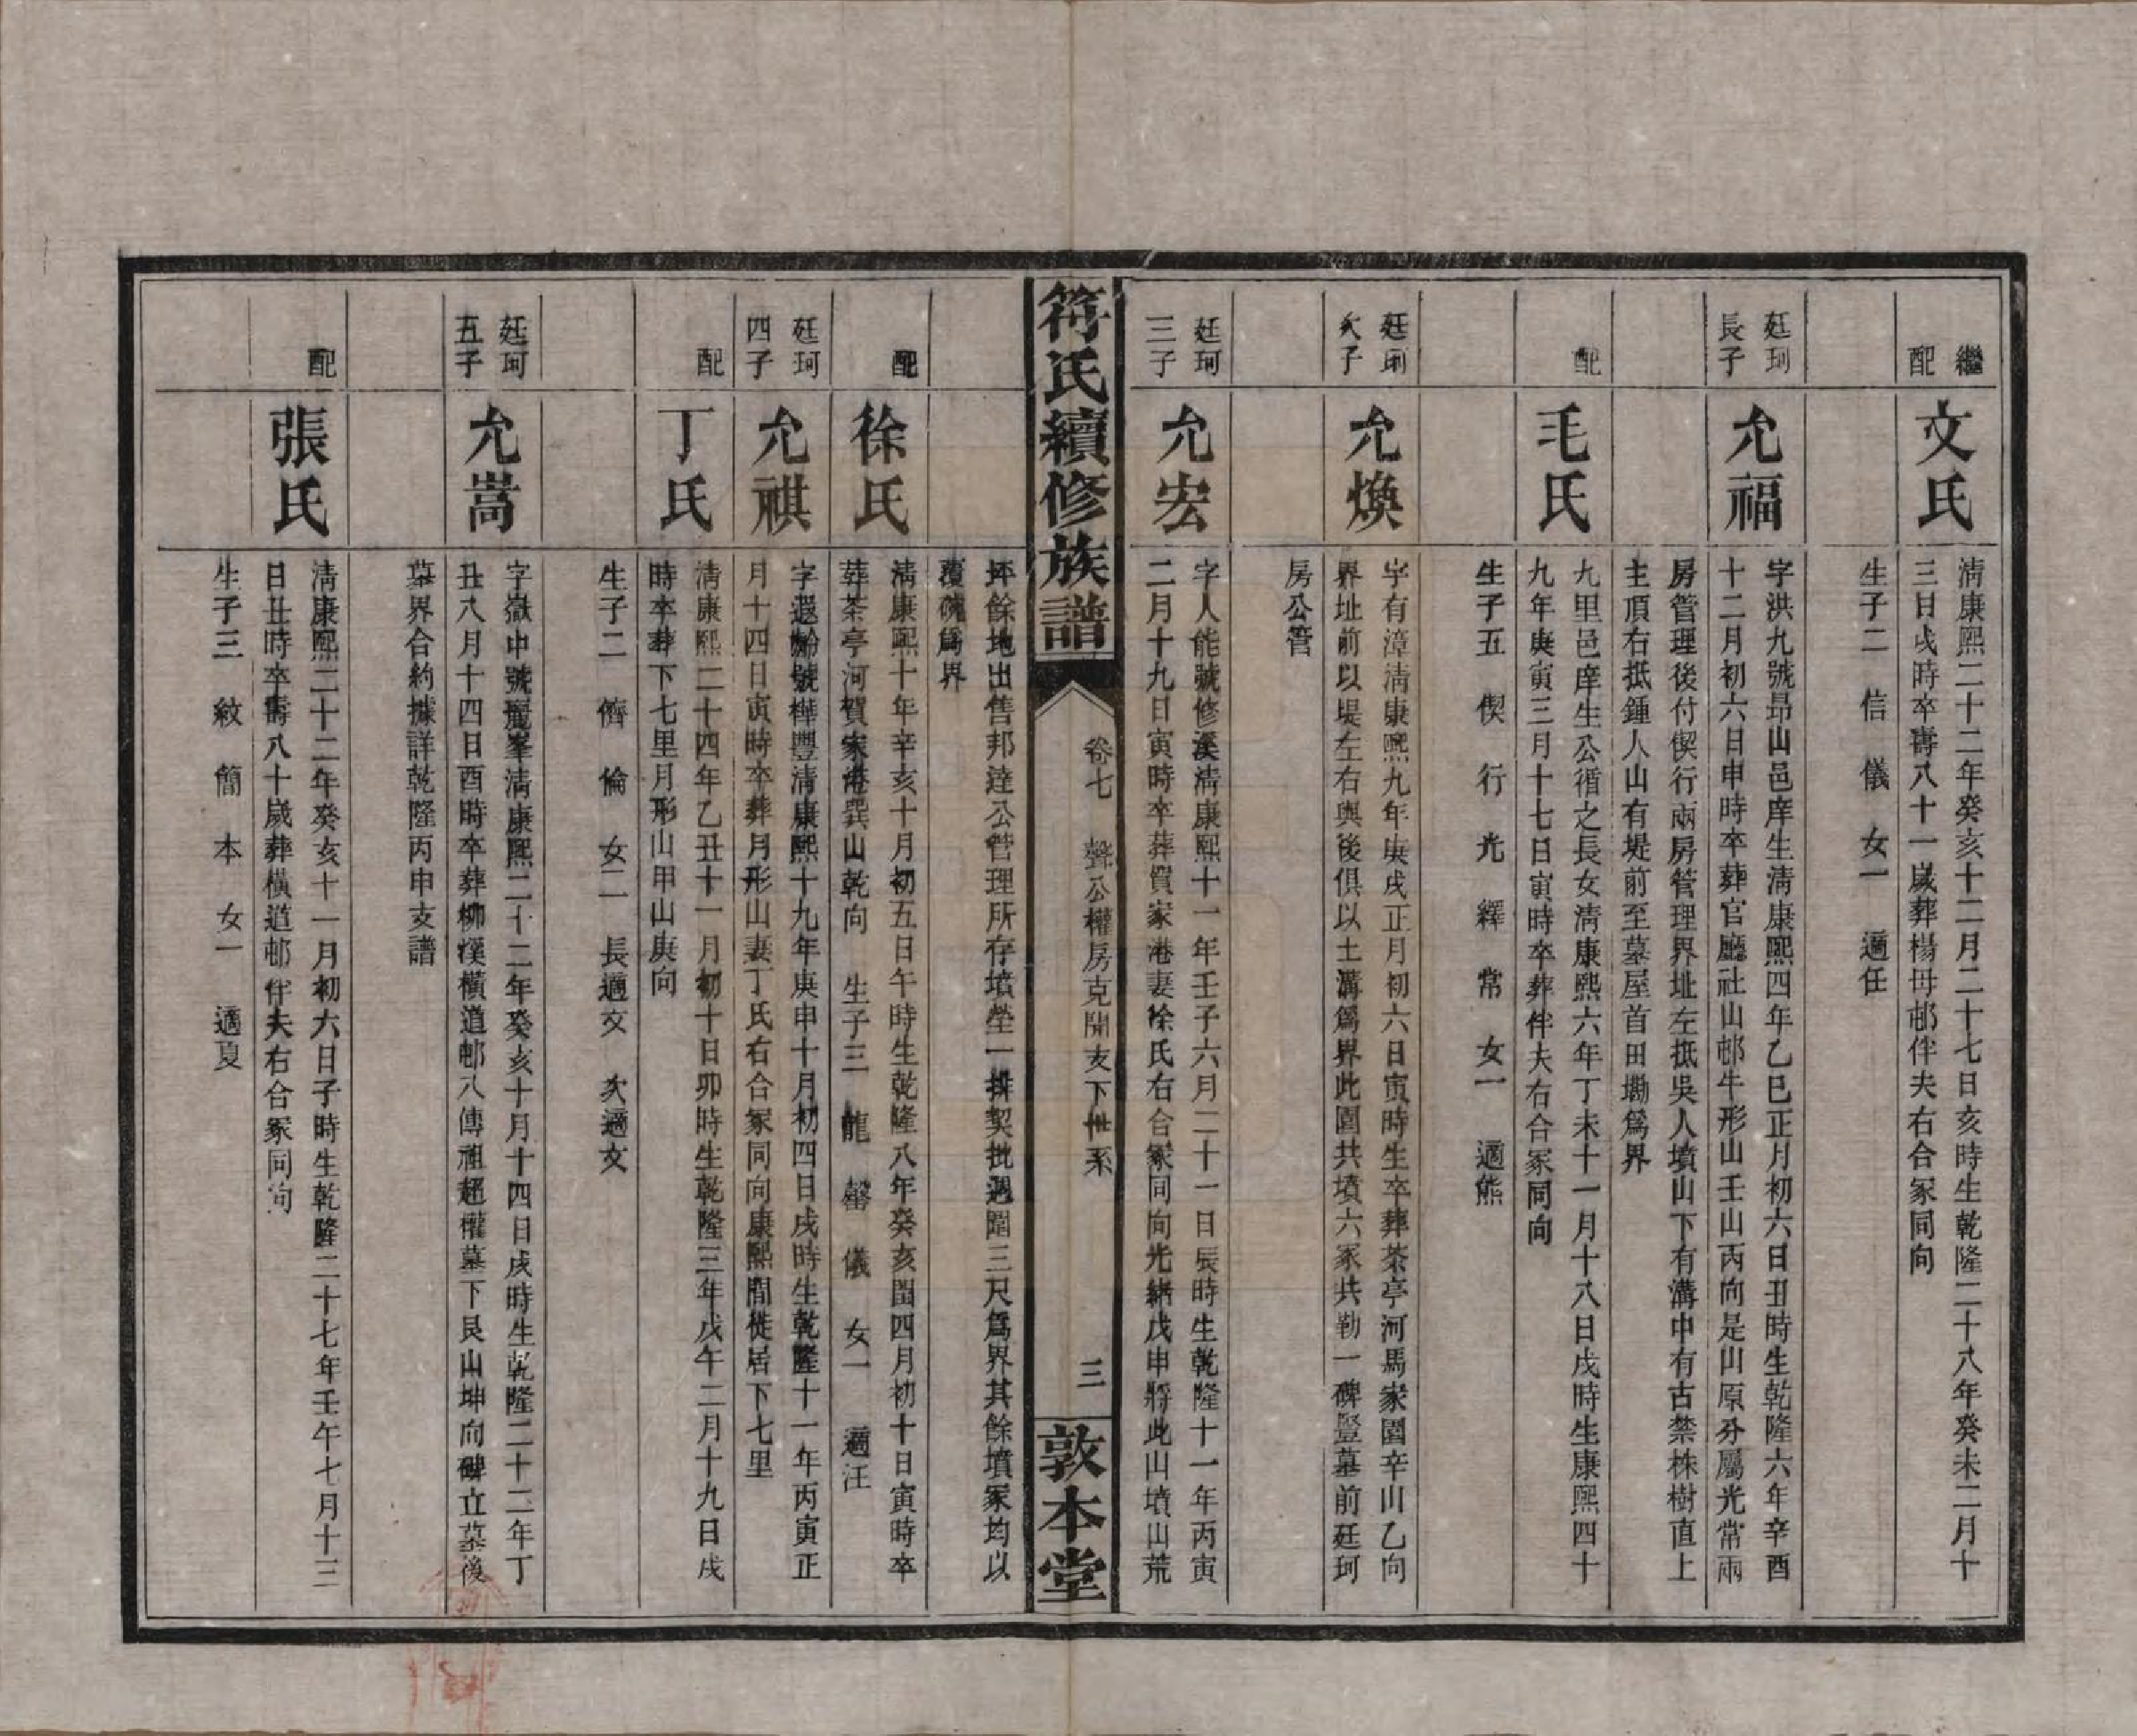 繼
配
文氏
清康熙二十二年癸亥十二月二十七日亥時生乾隆二十八年癸未二月十
三日戌時卒壽八十一歲葬楊毋邨伴夫右合冢同向
生子二 信 儀 女一 適任
廷珂
長子
允福
字洪九號昻山邑庠生清康熙四年乙巳正月初六日丑時生乾隆六年辛酉
十二月初六日申時卒葬官廳社山邨牛形山壬山丙向是山原分屬光常兩
房管理後付偰行兩房管理界址左抵吳人墳山下有溝中有古禁株樹直上
主頂右抵鍾人山有堤前至墓屋首田墈爲界
配
毛氏
九里邑庠生公循之長女清康熙六年丁未十一月十八日戌時生康熙四十
九年庚寅三月十七日寅時卒葬伴夫右合冢同向
生子五 偰 行 光 繹 常 女一 適熊
廷珂
次子
允煥
字有漳清康熙九年庚戌正月初六日寅時生卒葬茶亭河馬家園辛山乙向
界址前以堤左右與後俱以土溝爲界此園共墳六冢共勒一碑豎墓前廷珂
房公管
廷珂
三子
允宏
字人能號修溪清康熙十一年壬子六月二十一日辰時生乾隆十一年丙寅
二月十九日寅時卒葬賀家港妻徐氏右合冢同向光緖戊申將此山墳山荒
符氏續修族譜
卷七 聲公權房克開支下世系
三
敦本堂
坪餘地出售邦達公管理所存墳塋一排契批週圍三尺爲界其餘墳冢均以
覆磽爲界
配
徐氏
清康熙十年辛亥十月初五日午時生乾隆八年癸亥閏四月初十日寅時卒
葬茶亭河賀家港巽山乾向 生子三 龍 罄 儀 女一 適汪
廷珂
四子
允祺
字遐齡號樺豐清康熙十九年庚申十月初四日戌時生乾隆十一年丙寅正
月十四日寅時卒葬月形山妻丁氏右合冢同向康熙間徙居下七里
配
丁氏
清康熙二十四年乙丑十一月初十日卯時生乾隆三年戊午二月十九日戌
時卒葬下七里月形山甲山庚向
生子二 儕 倫 女二 長適文 次適文
廷珂
五子
允嵩
字嶽中號麗峯清康熙二十二年癸亥十月十四日戌時生乾隆二十二年丁
丑八月十四日酉時卒葬柳溪橫道邨八傳祖超權墓下艮山坤向碑立墓後
墓界合約據詳乾隆丙申支譜
配
張氏
清康熙二十二年癸亥十一月初六日子時生乾隆二十七年壬午七月十三
日丑時卒壽八十歲葬橫道邨伴夫右合冢同向
生子三 紋 簡 本 女一 適夏